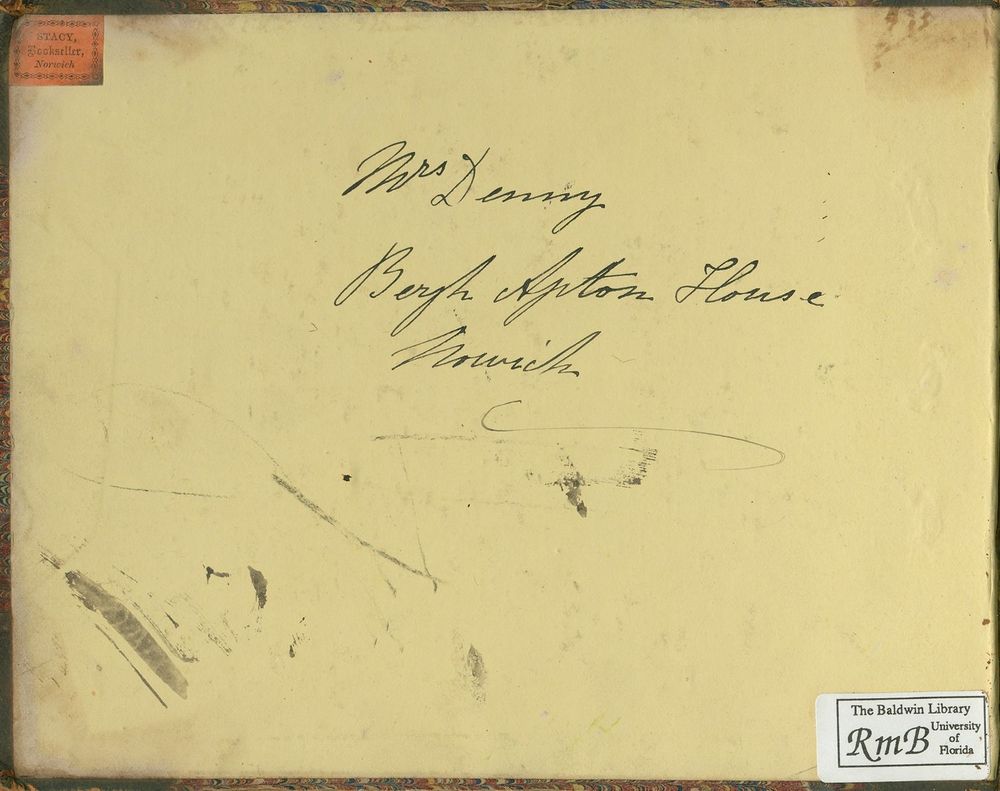 STACY,
Bookseller,
Norwich
Mrs Denny
Bergh Apton House
Norwich
The Baldwin Library
RmB
University
of
Florida